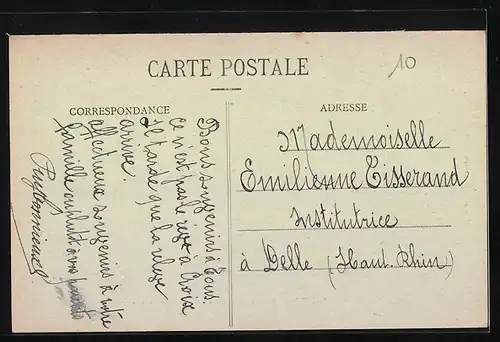 CARTE POSTALE
10
CORRESPONDANCE
ADRESSE
Bons souvenirs à tous.
ce n'est pas le rêve à Croix
il tarde que la relève
arrive
affectueux souvenirs à votre
famille surtout à vos parents
Mademoiselle
Emilienne Tisserand
Institutrice
à Delle (Haut. Rhin)